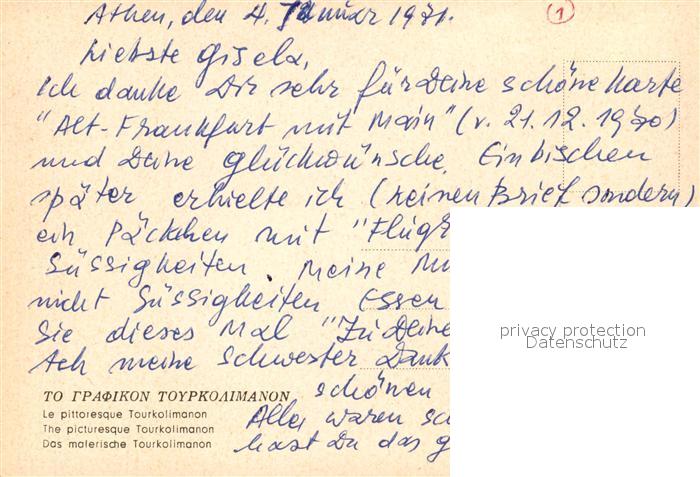 Athen, den 4. Januar 1971.
(1)
Liebste Gisela,
Ich danke Dir sehr für Deine schöne Karte
"Alt-Frankfurt mit Main" (v. 21.12.1970)
und Deine Glückwünsche. Ein bischen
später erhielte ich (keinen Brief sondern)
ein Päckchen mit "Flug
Süssigkeiten. Meine Mu
nicht Süssigkeiten Essen
Sie dieses Mal "Zu Deine
Ach meine Schwester Dank
schönen
Alles waren sc
hast Du das g
privacy protection
Datenschutz
ΤΟ ΓΡΑΦΙΚΟΝ ΤΟΥΡΚΟΛΙΜΑΝΟΝ
Le pittoresque Tourkolimanon
The picturesque Tourkolimanon
Das malerische Tourkolimanon